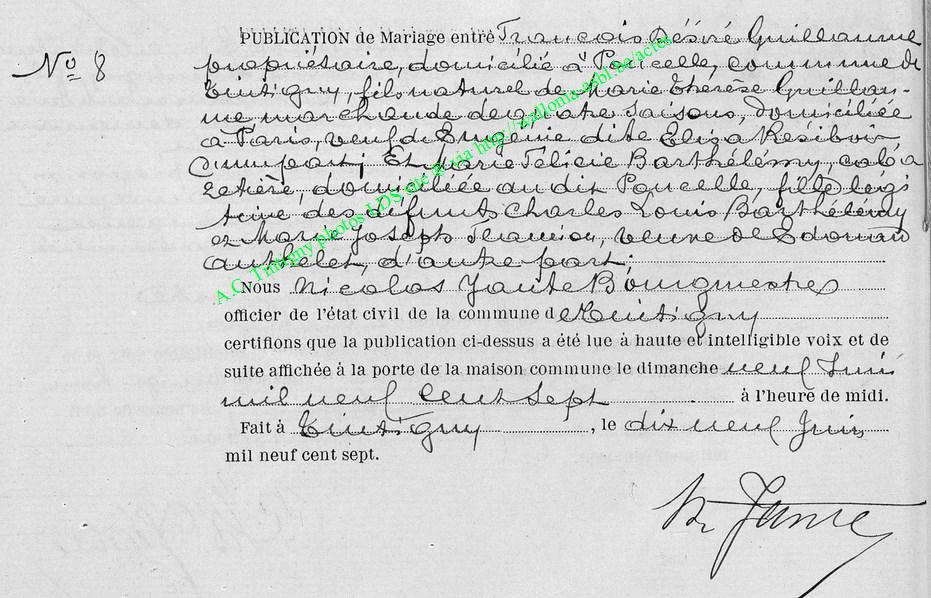 PUBLICATION de Mariage entre François Désiré Guillaume
No 8
propriétaire, domicilié à Poncelle, commune de
Tintigny, fils naturel de Marie Thérèse Guillau-
me marchande de quatre saisons, domiciliée
à Paris, veuf de Eugénie dite Eliza Résibois
d'une part; Et Marie Félicie Barthélémy, caba
retière, domiciliée au dit Poncelle, fille légi
time des défunts Charles Louis Barthélémy
et Marie Joseph veuve de Edouard
Authelet, d'autre part;
Nous Nicolas Jante Bourgmestre
officier de l'état civil de la commune de Tintigny
certifions que la publication ci-dessus a été lue à haute et intelligible voix et de
suite affichée à la porte de la maison commune le dimanche neuf Juin
mil neuf Cent sept à l'heure de midi.
Fait à Tintigny, le dix neuf Juin
mil neuf cent sept.
N. Jante
A.C. Tintigny photos LDS site @ via http://wallonia-asbl.be/actes